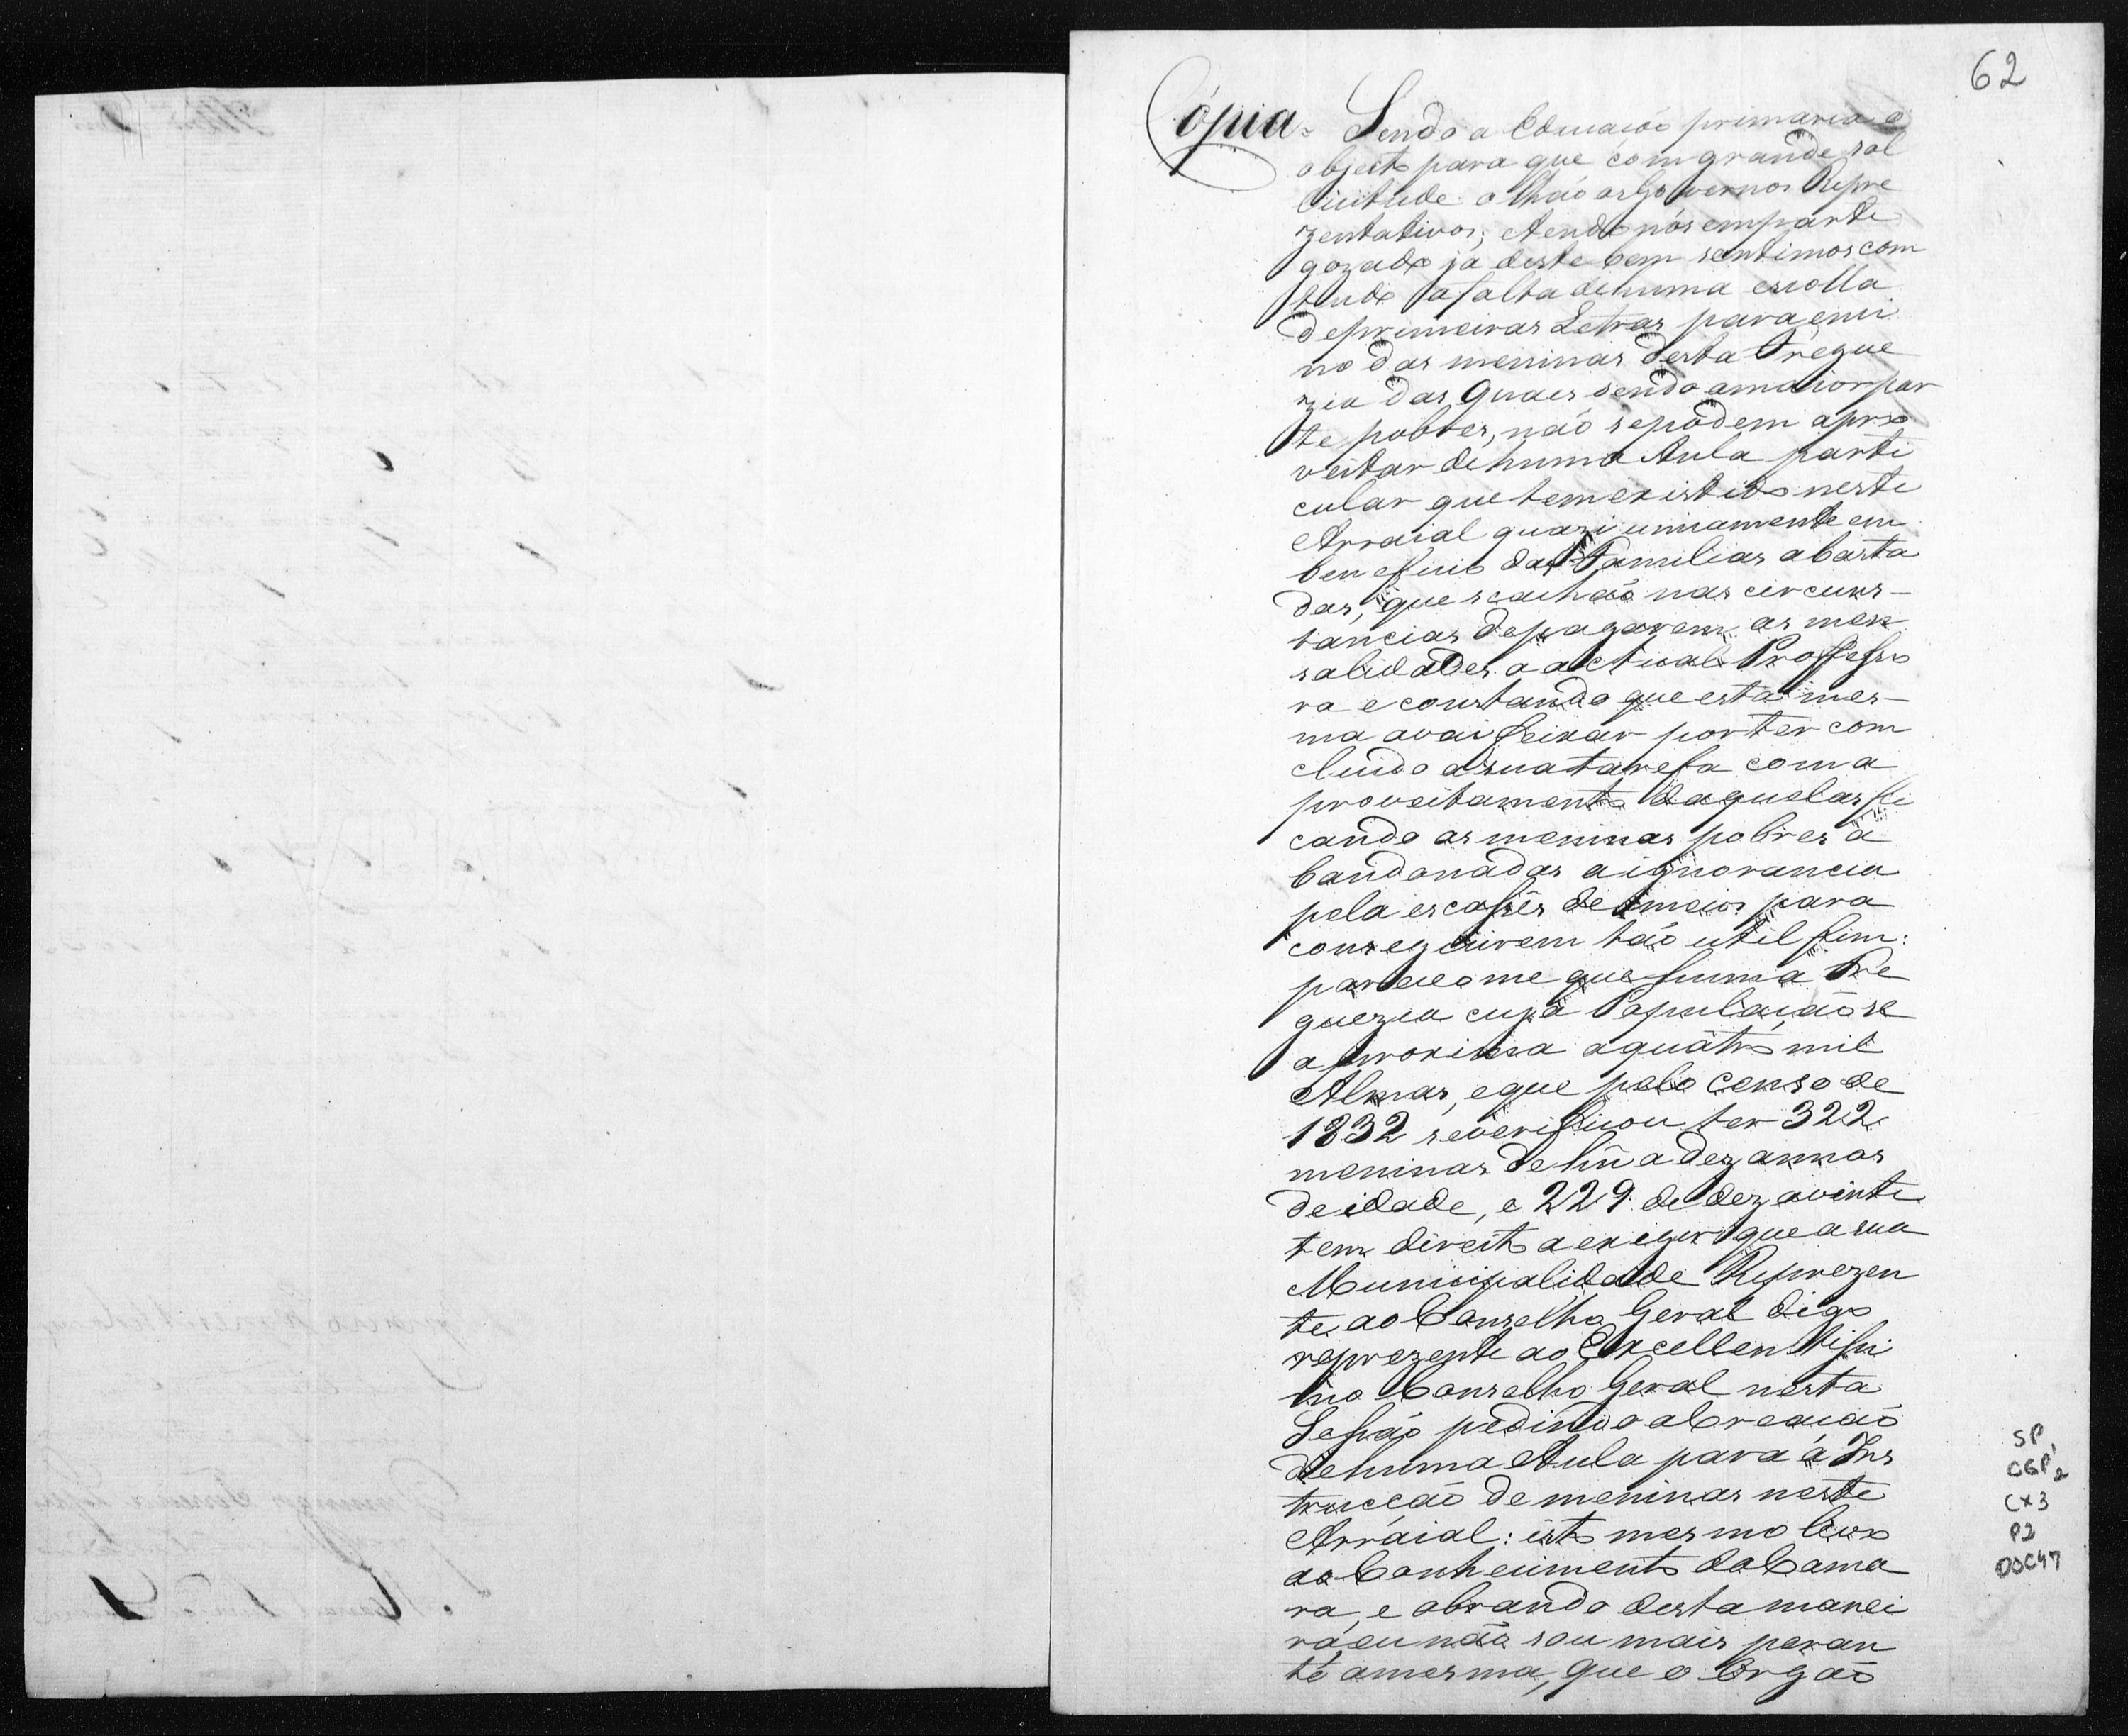 62
Cópia = Sendo a Educação primaria o
objecto para que com grande sol
licitude olhão os Governos Repre
zentativos; etendo nós emparte
gozado ja deste bem sentimos com
tudo a falta dehuma escolla
deprimeiras Letras para ensi
no das meninas desta Fregue
zia das quaes sendo amaior par
te pobres, não sepódem apro
veitar dehuma Aula parti
cular que tem existido neste
Arraial quazi unicamente em
beneficio das Familias abasta
das, que seachão nas circuns-
tancias depagarem as men
salidades a actual Professo
ra e constando que esta mes-
ma avai deixar por ter com
cluido asua tarefa com a
proveitamento daquelas fi
cando as meninas pobres a
bandonadas a ignorancia
pela escassês de meios para
conseguirem tão util fim:
pareceome que huma Fre
guezia cuja População se
aproxima aquatro mil
Almas, eque pelo censo de
1832 severificou ter 322
meninas de hũ a dez annos
de idade, e 229 de dez avinte
tem direito a exigir que a sua
Municipalidade Reprezen
te ao Conselho Geral digo
reprezente ao Excellentissi
mo Conselho Geral nesta
Sessão pedindo a Creação
dehuma Aula para a Ins
trucção de meninas neste
Arraial: isto mesmo levo
ao Conhecimento da Cama
ra, e obrando desta manei
ra, eu não sou mais peran
te amesma, que o Orgão
SP
CGP
2
CX3
P2
DOC47